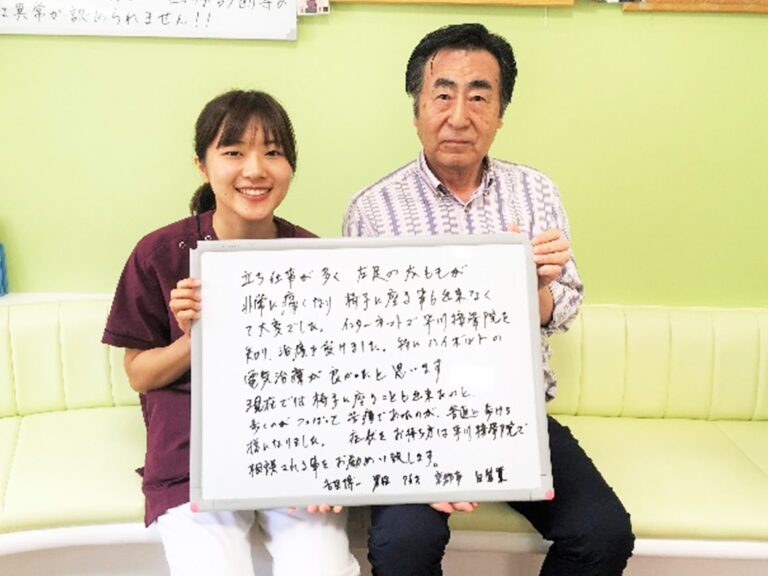 は異常が認められません!!
立ち仕事が多く 左足の太ももが
非常に痛くなり 椅子に座る事も出来なく
て大変でした。インターネットで平川接骨院を
知り、治療を受けました。特にハイボルトの
電気治療が良かったと思います
現在では椅子に座ることも出来たのと、
歩くのがつっぱって苦痛であったのが、普通に歩ける
様になりました。 症状をお持ち方は平川接骨院で
相談される事をお勧め致します。
男性 76才 京都市 自営業